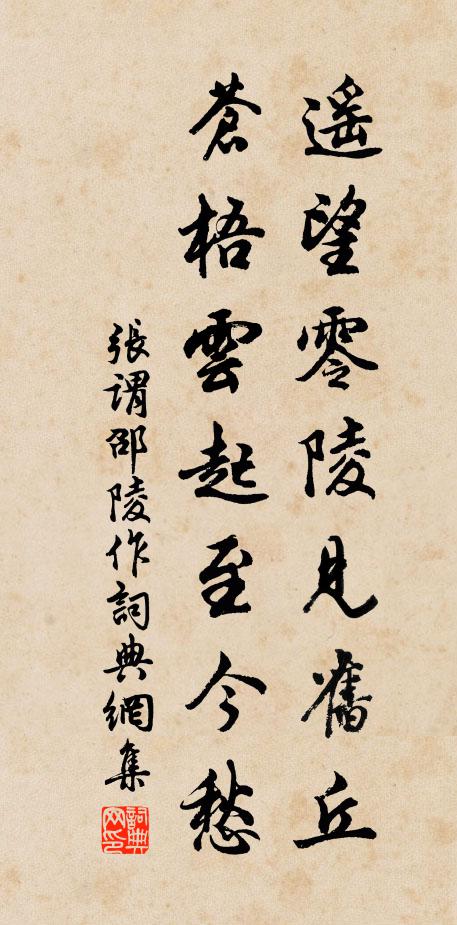 遥望零陵見舊丘
蒼梧雲起至今愁
張謂邵陵作詞典網集
詞典網印